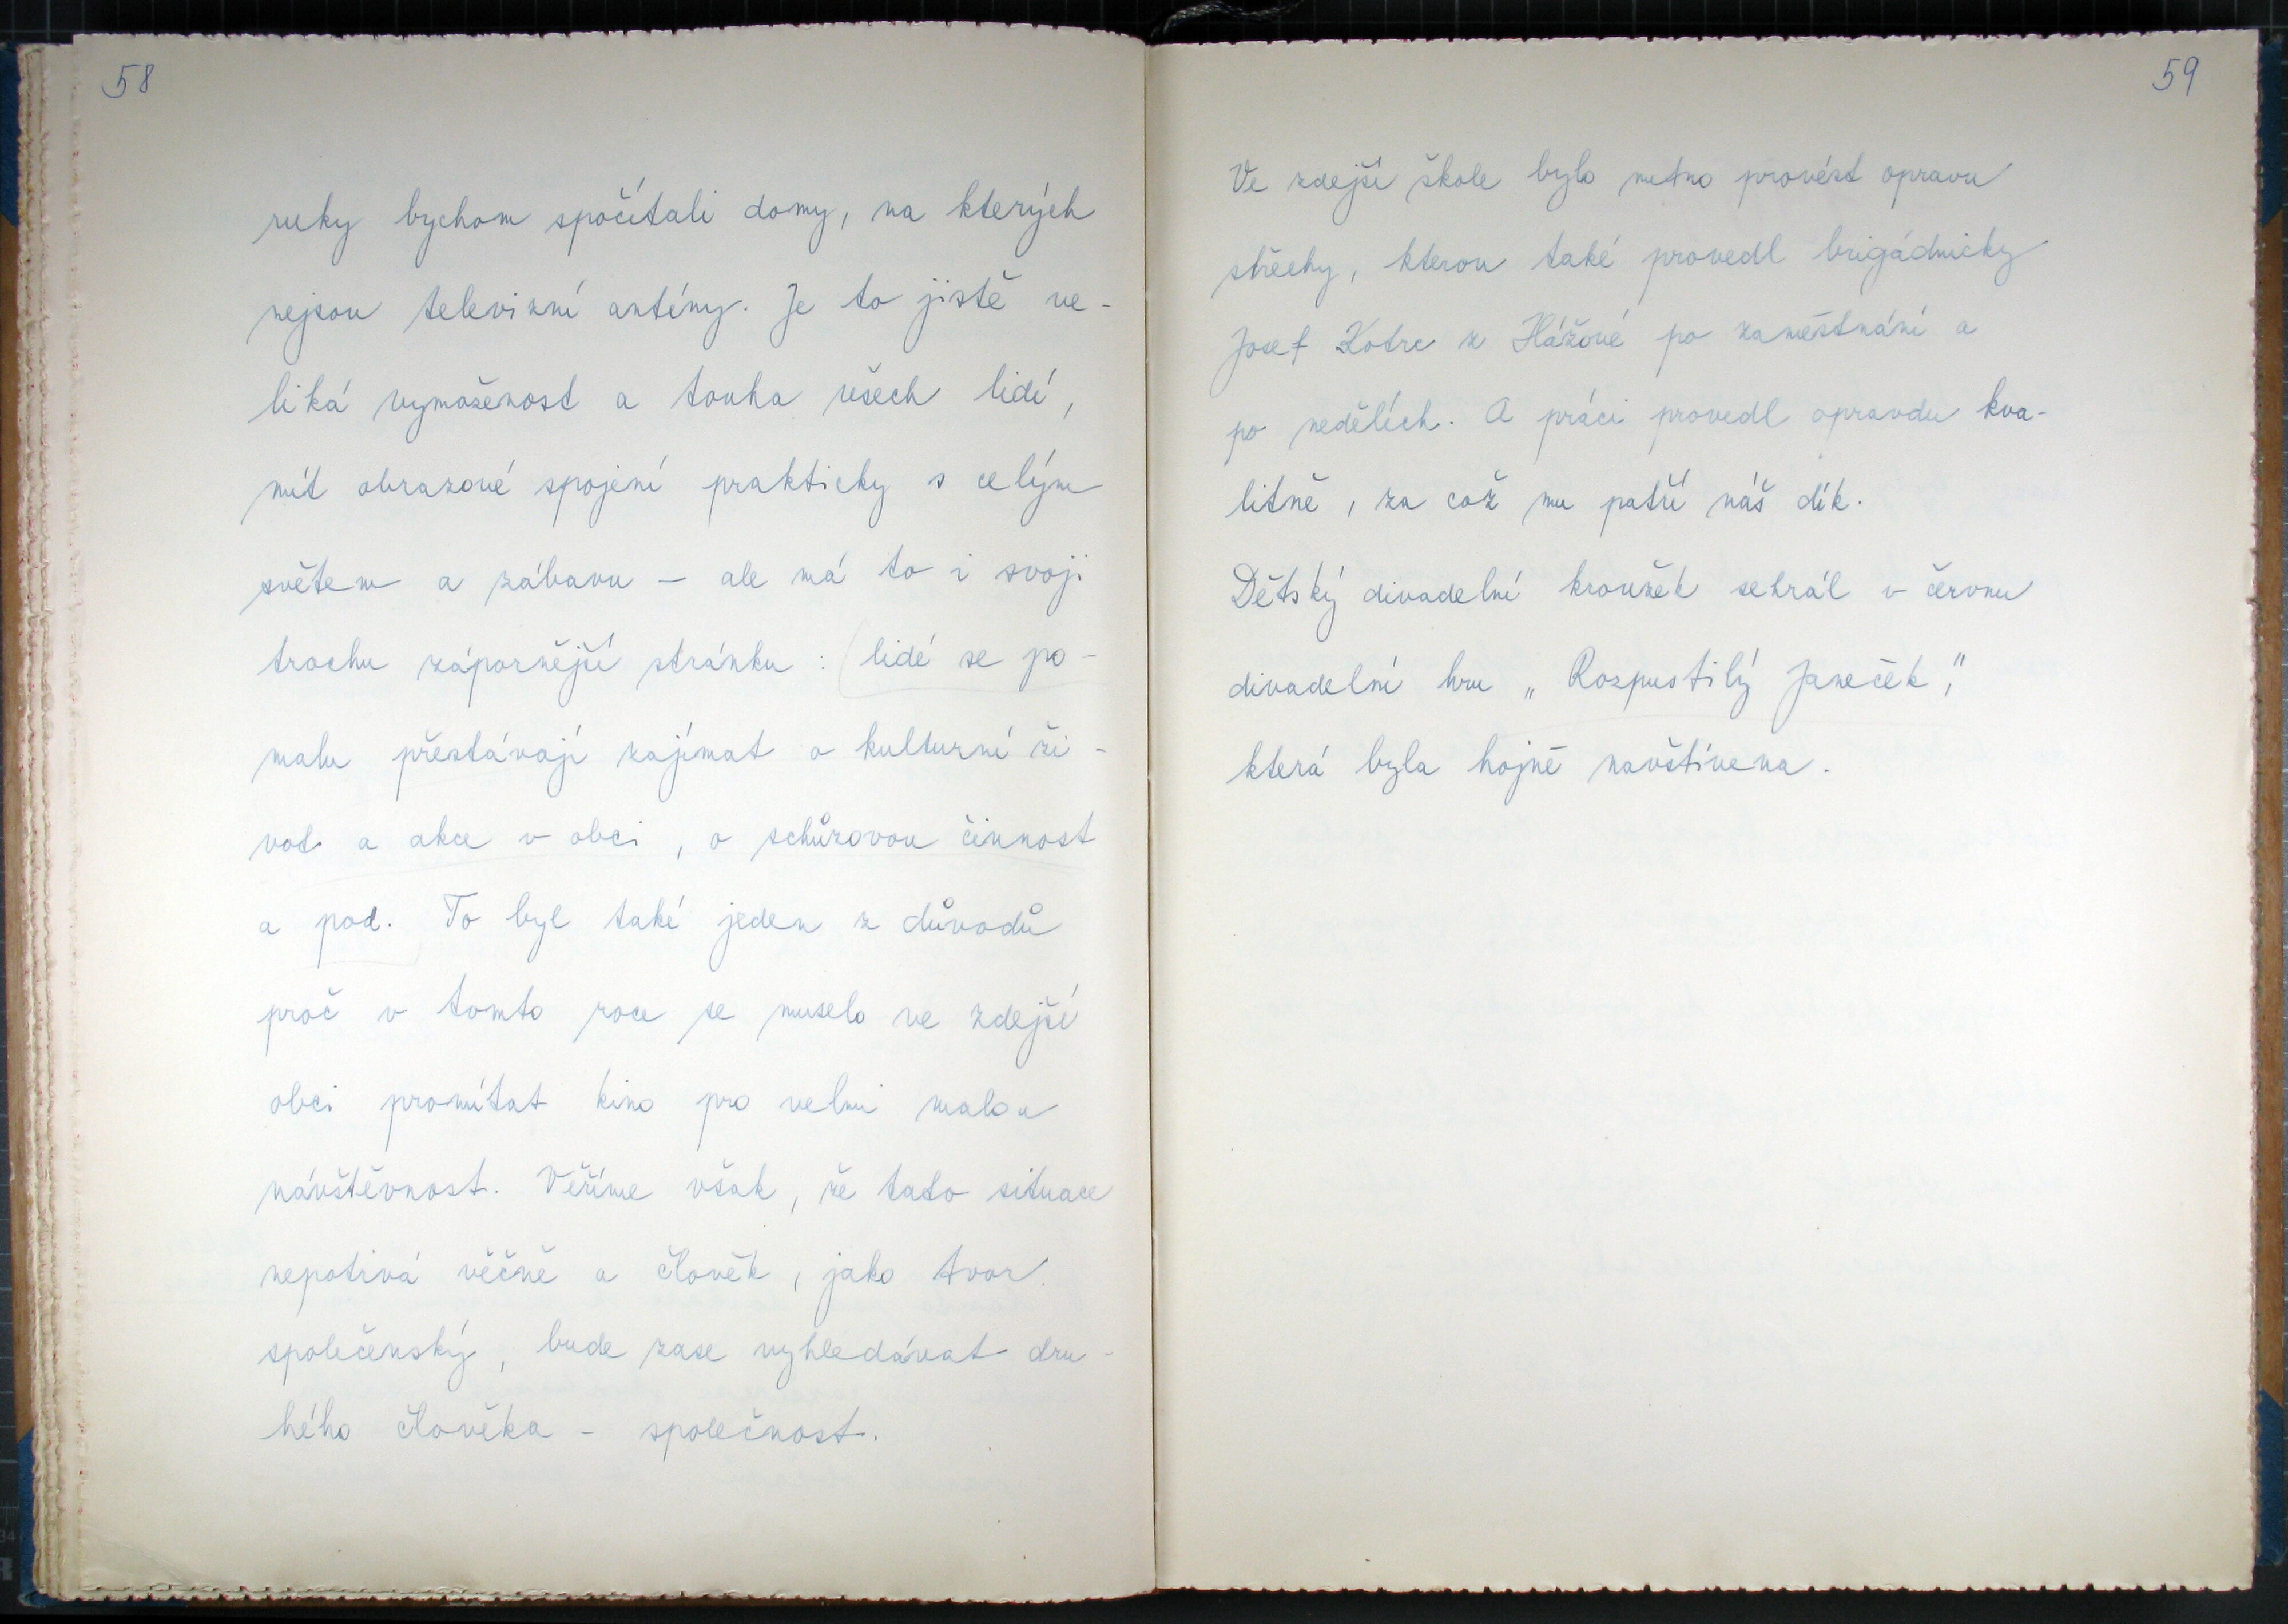 58
ruky bychom spočítali domy, na kterých
nejsou televizní antény. Je to jistě ve-
liká vymoženost a touha všech lidí,
mít obrazové spojení prakticky s celým
světem a zábavu – ale má to i svoji
trochu zápornější stránku : (lidé se po-
malu přestávají zajímat o kulturní ži-
vot a akce v obci, o schůzovou činnost
a pod. To byl také jeden z důvodů
proč v tomto roce se muselo ve zdejší
obci promítat kino pro velmi malou
návštěvnost. Věříme však, že tato situace
nepotrvá věčně a člověk, jako tvor
společenský, bude zase vyhledávat dru-
hého člověka – společnost.
59
Ve zdejší škole bylo nutno provést opravu
střechy, kterou také provedl brigádnicky
Josef Kotrc z Hážové po zaměstnání a
po nedělích. A práci provedl opravdu kva-
litně, za což mu patří náš dík.
Dětský divadelní kroužek sehrál v červnu
divadelní hru „Rozpustilý Janeček",
která byla hojně navštívena.